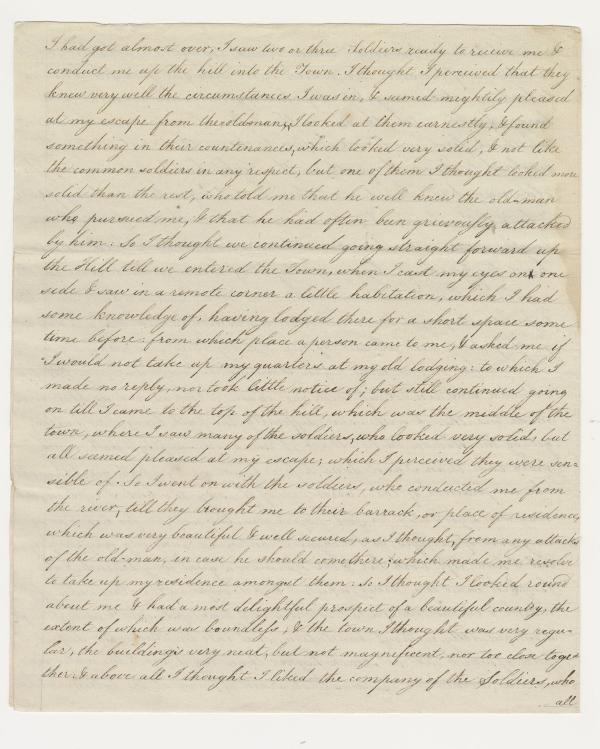 I had got almost over, I saw two or three Soldiers ready to receive me &
conduct me up the hill into the Town. I thought I perceived that they
knew very well the circumstances I was in, & seemed mightily pleased
at my escape from the old-man; I looked at them earnestly, & found
something in their countenances, which looked very solid, & not like
the common soldiers in any respect, but one of them I thought looked more
solid than the rest, who told me that he well knew the old-man
who pursued me, & that he had often been grievously attacked
by him: So I thought we continued going straight forward up
the Hill till we entered the Town, when I cast my eyes on one
side & saw in a remote corner a little habitation, which I had
some knowledge of, having lodged there for a short space some
time before: from which place a person came to me, & asked me if
I would not take up my quarters at my old lodging: to which I
made no reply, nor took little notice of; but still continued going
on till I came to the top of the hill, which was the middle of the
town, where I saw many of the soldiers, who looked very solid, but
all seemed pleased at my escape; which I perceived they were sen-
sible of. So I went on with the soldiers, who conducted me from
the river, till they brought me to their barrack, or place of residence,
which was very beautiful & well secured, as I thought, from any attacks
of the old-man, in case he should come there; which made me resolve
to take up my residence amongst them: So I thought I looked round
about me & had a most delightful prospect of a beautiful country, the
extent of which was boundless, & the town I thought was very regu-
lar, the buildings very neat, but not magnificent, nor too close toge-
ther: & above all I thought I liked the company of the Soldiers, who
all